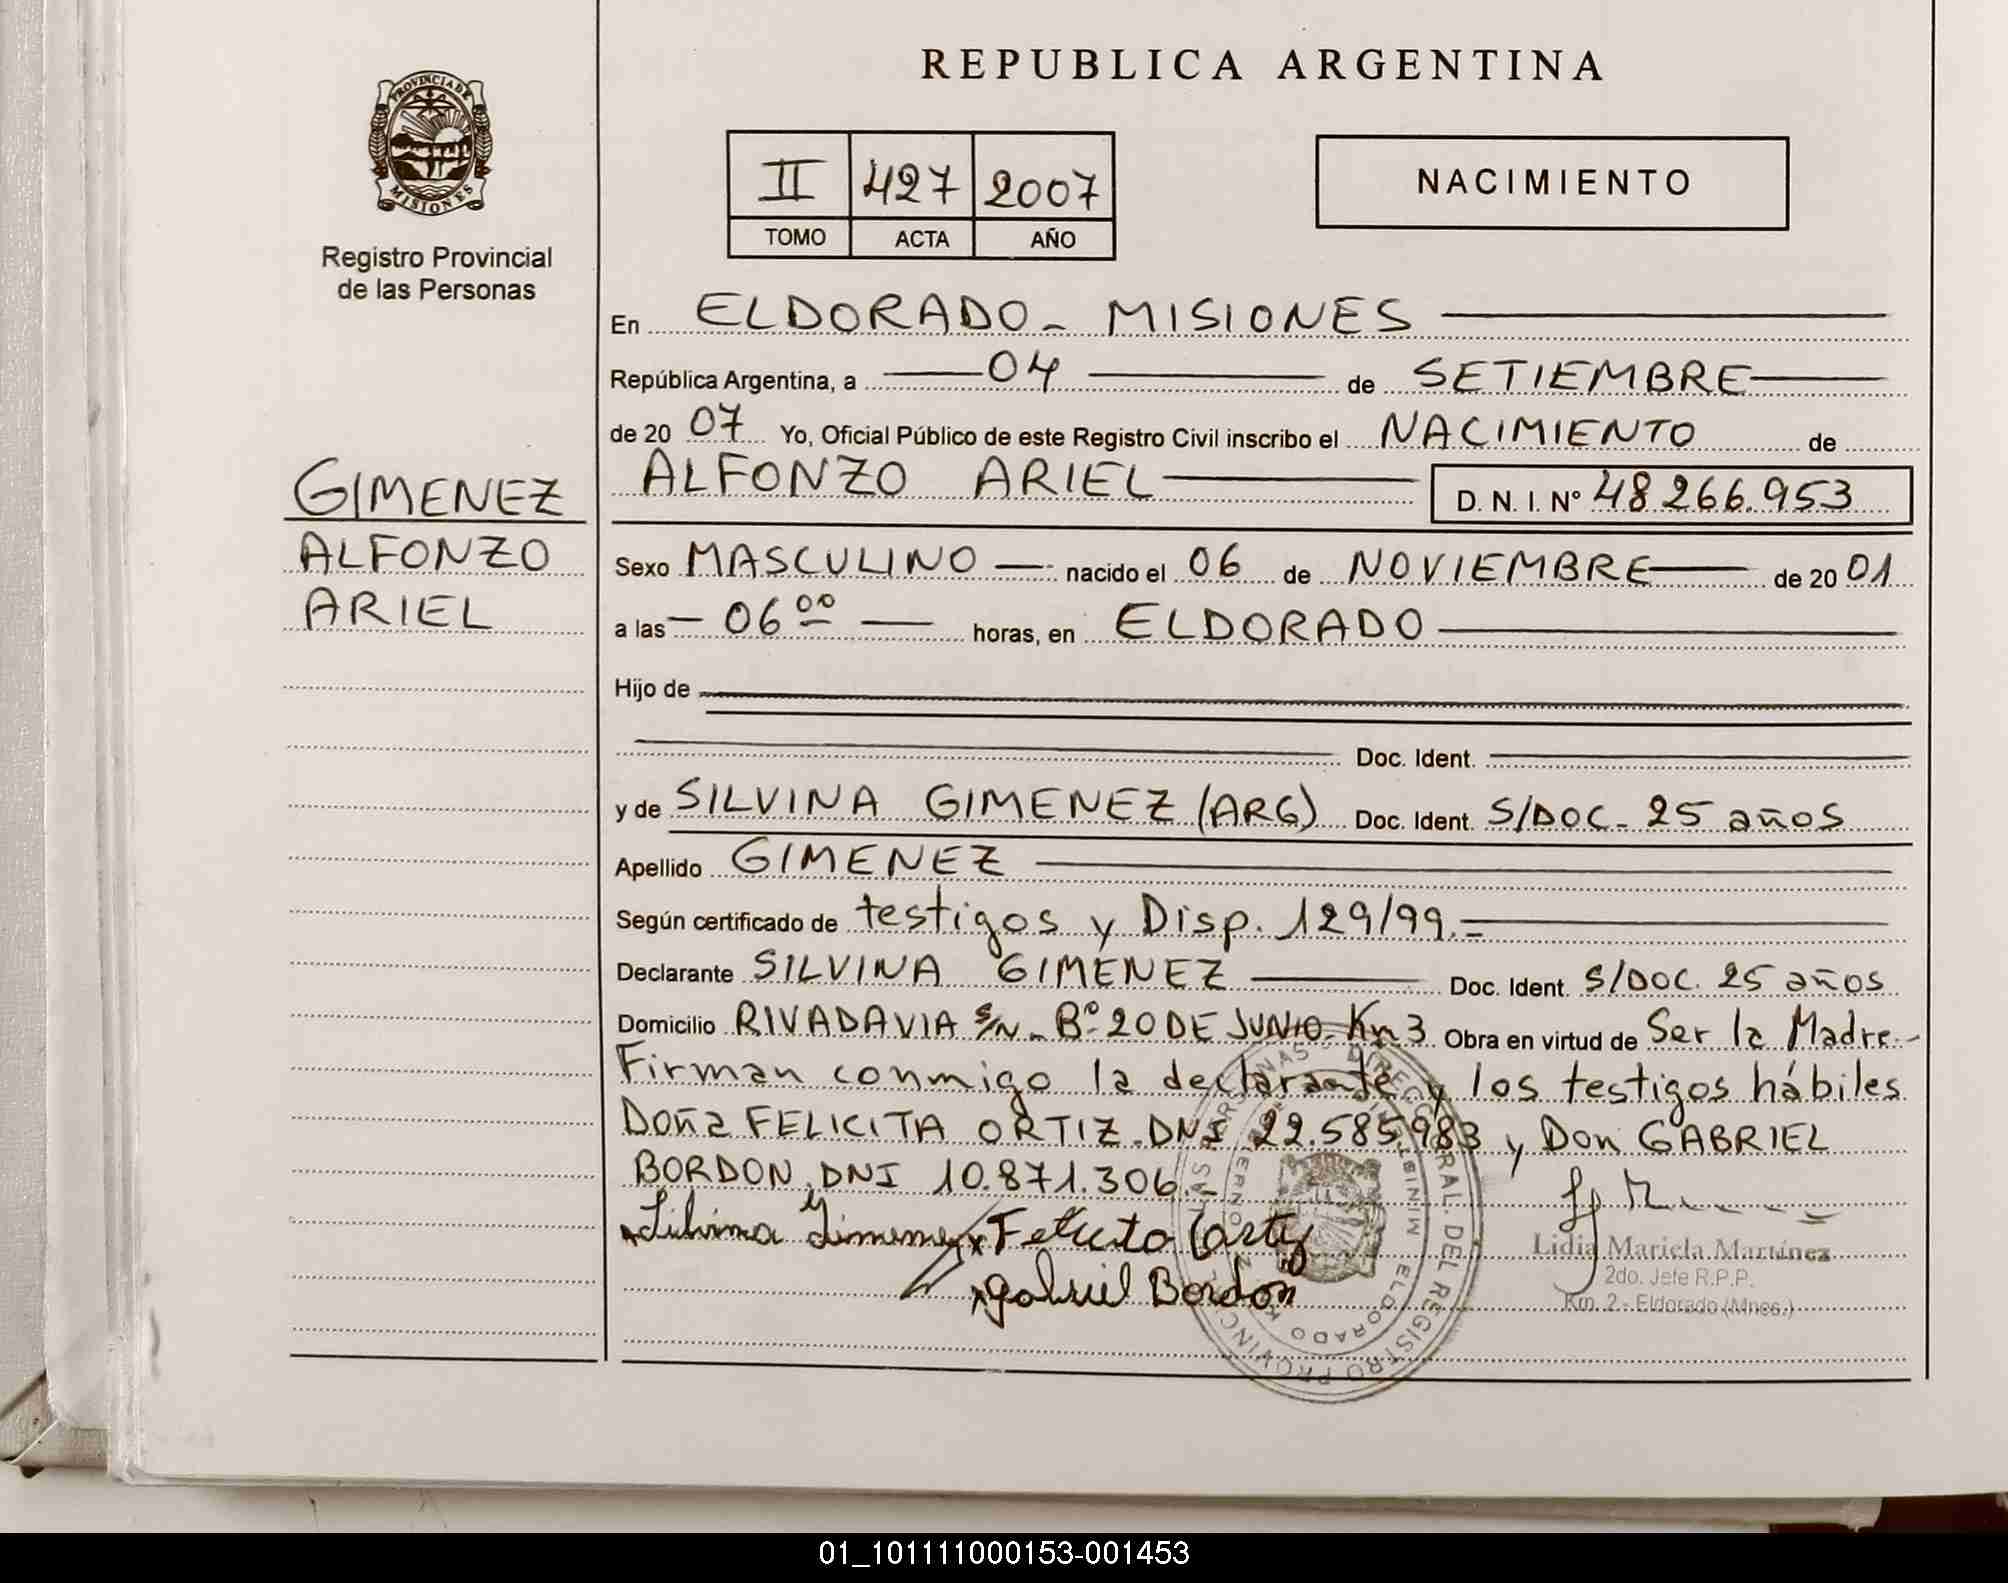 REPUBLICA ARGENTINA
PROVINCIA DE
MISIONES
Registro Provincial
de las Personas
II 427 2007
TOMO ACTA AÑO
NACIMIENTO
En ELDORADO - MISIONES
República Argentina, a 04 de SETIEMBRE
de 20 07 Yo, Oficial Público de este Registro Civil inscribo el NACIMIENTO de
ALFONZO ARIEL D. N. I. Nº 48 266.953
GIMENEZ
ALFONZO
ARIEL
Sexo MASCULINO nacido el 06 de NOVIEMBRE de 20 01
a las 06 00 horas, en ELDORADO
Hijo de
Doc. Ident.
y de SILVINA GIMENEZ (ARG) Doc. Ident. S/DOC - 25 años
Apellido GIMENEZ
Según certificado de testigos y Disp. 129/99.-
Declarante SILVINA GIMENEZ Doc. Ident. S/DOC. 25 años
Domicilio RIVADAVIA S/N - Bº 20 DE JUNIO - Km 3 Obra en virtud de Ser la Madre.-
Firman conmigo la declarante y los testigos hábiles
Doña FELICITA ORTIZ - DNI 22.585983 y Don GABRIEL
BORDON, DNI 10.871.306.-
x Silvina Gimenez x Felicita Ortiz
x Gabriel Bordon
Lidia Mariela Martínez
2do. Jefe R.P.P.
Km. 2 - Eldorado (Mnes.)
01_101111000153-001453